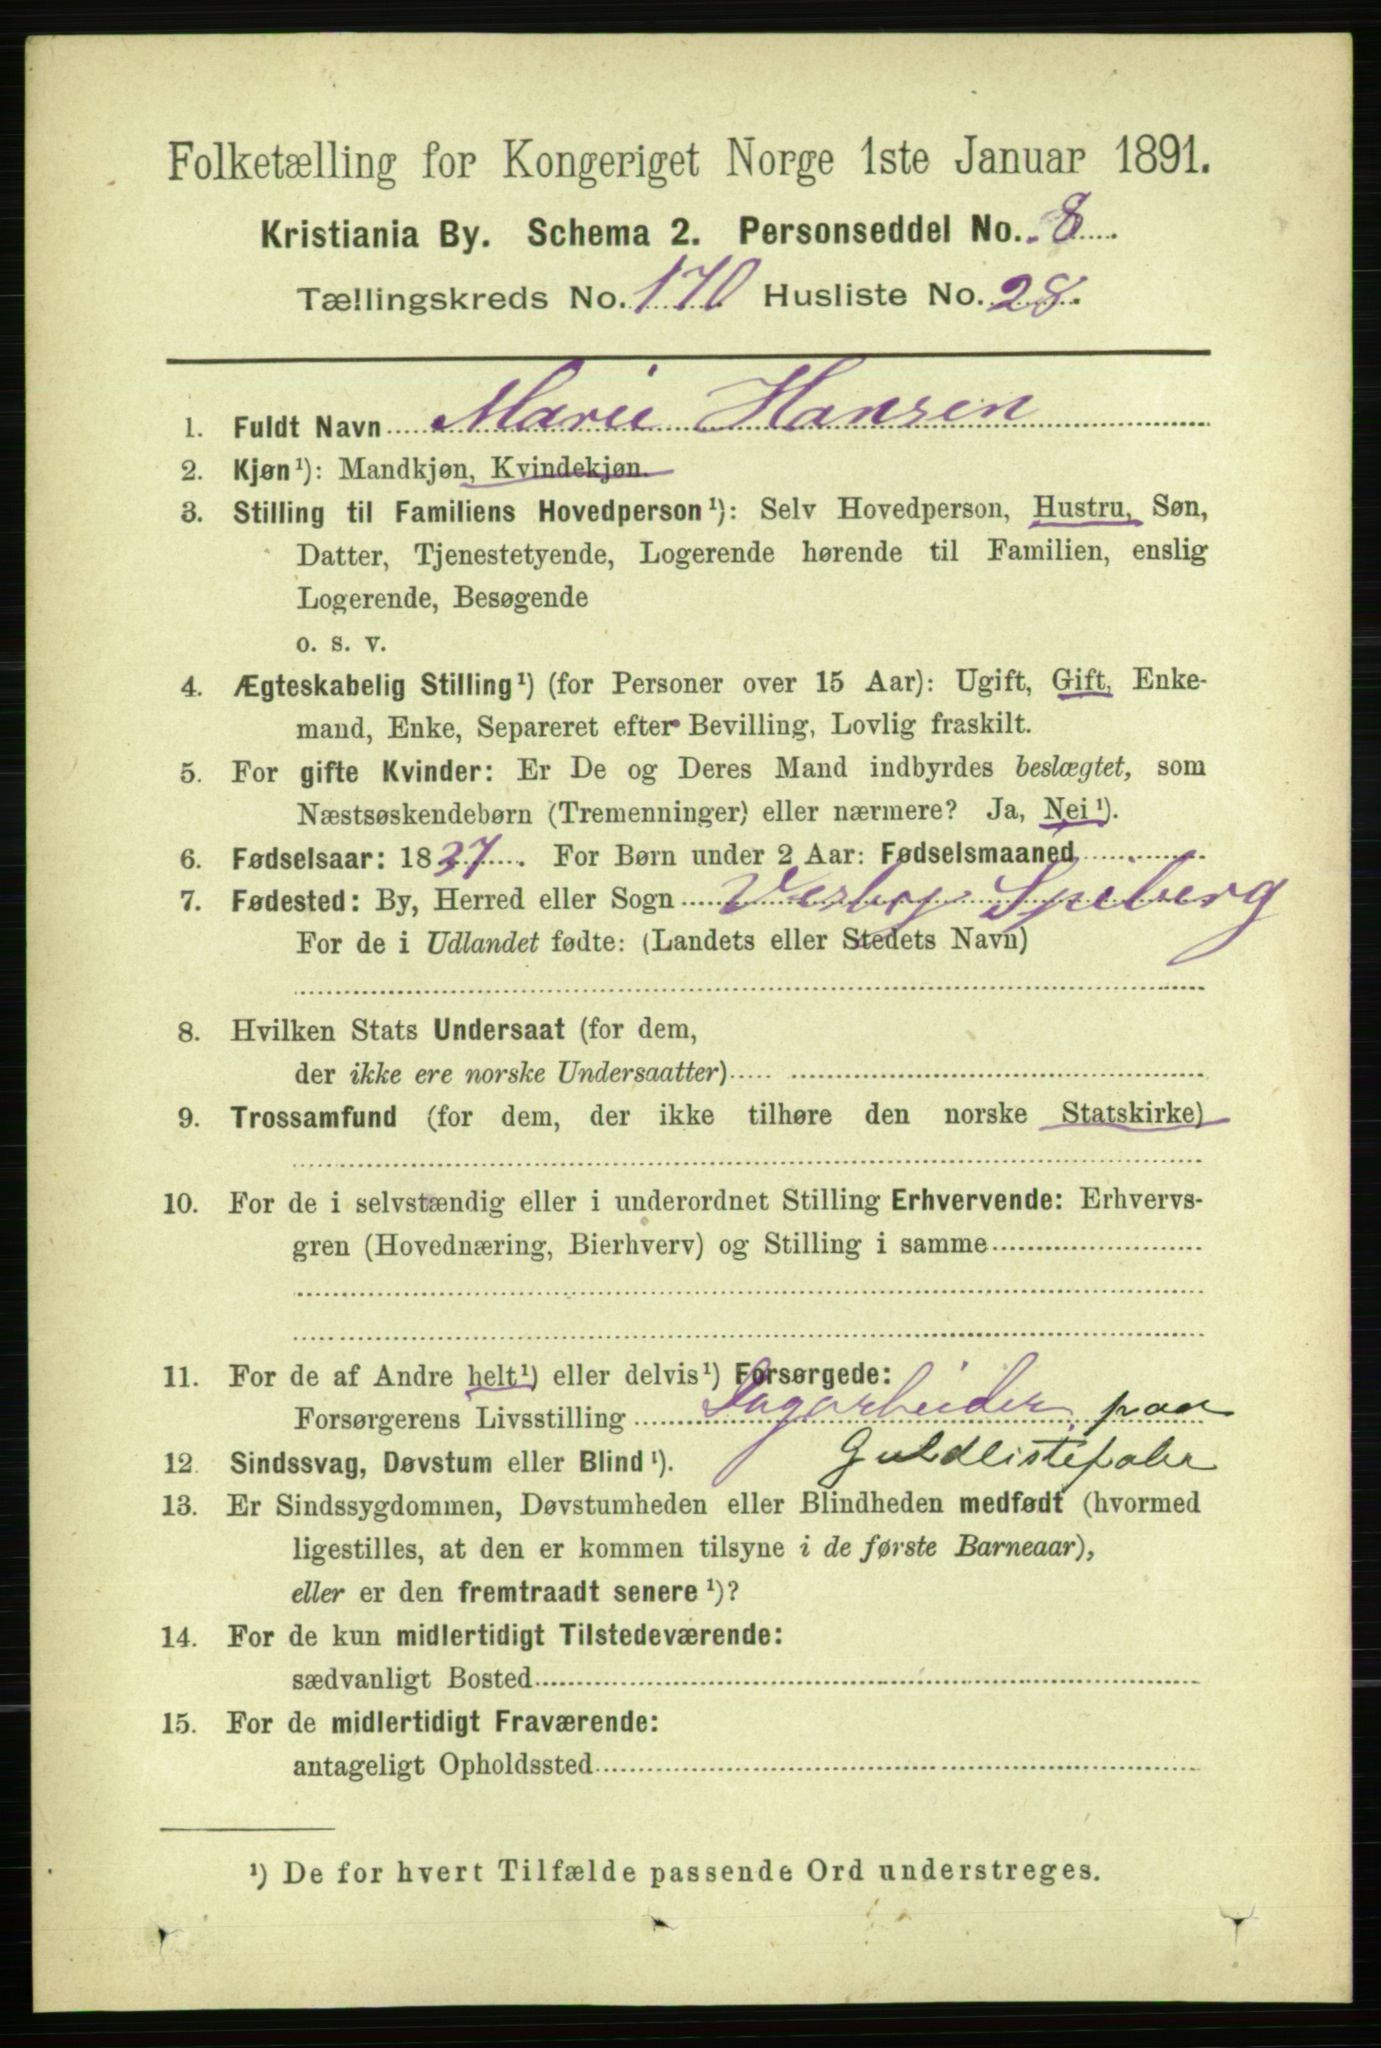 Folketælling for Kongeriget Norge 1ste Januar 1891.
Kristiania By. Schema 2. Personseddel No. 8
Tællingskreds No. 170 Husliste No. 28.
1. Fuldt Navn Marie Hansen
2. Kjøn¹): Mandkjøn, Kvindekjøn.
3. Stilling til Familiens Hovedperson¹): Selv Hovedperson, Hustru, Søn,
Datter, Tjenestetyende, Logerende hørende til Familien, enslig
Logerende, Besøgende
o. s. v.
4. Ægteskabelig Stilling¹) (for Personer over 15 Aar): Ugift, Gift, Enke-
mand, Enke, Separeret efter Bevilling, Lovlig fraskilt.
5. For gifte Kvinder: Er De og Deres Mand indbyrdes beslægtet, som
Næstsøskendebørn (Tremenninger) eller nærmere? Ja, Nei¹).
6. Fødselsaar: 1837. For Børn under 2 Aar: Fødselsmaaned
7. Fødested: By, Herred eller Sogn Speberg
For de i Udlandet fødte: (Landets eller Stedets Navn)
8. Hvilken Stats Undersaat (for dem,
der ikke ere norske Undersaatter)
9. Trossamfund (for dem, der ikke tilhøre den norske Statskirke)
10. For de i selvstændig eller i underordnet Stilling Erhvervende: Erhvervs-
gren (Hovednæring, Bierhverv) og Stilling i samme
11. For de af Andre helt¹) eller delvis¹) Forsørgede:
Forsørgerens Livsstilling Dagarbeider paa
Guldlistefabr
12. Sindssvag, Døvstum eller Blind¹).
13. Er Sindssygdommen, Døvstumheden eller Blindheden medfødt (hvormed
ligestilles, at den er kommen tilsyne i de første Barneaar),
eller er den fremtraadt senere¹)?
14. For de kun midlertidigt Tilstedeværende:
sædvanligt Bosted
15. For de midlertidigt Fraværende:
antageligt Opholdssted
¹) De for hvert Tilfælde passende Ord understreges.